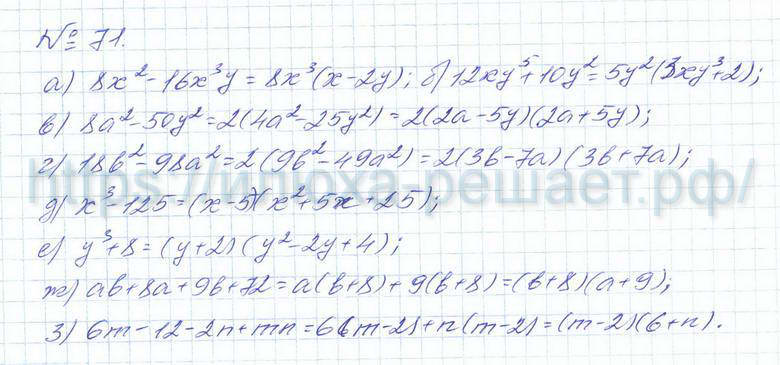 № 71.
а) 8x² - 16x³y = 8x³(x-2y); б) 12xy⁵+10y² = 5y²(3xy³+2);
в) 8a²-50y² = 2(4a²-25y²) = 2(2a-5y)(2a+5y);
г) 18b²-98a² = 2(9b²-49a²) = 2(3b-7a)(3b+7a);
д) x³-125 = (x-5)(x²+5x+25);
е) y³+8 = (y+2)(y²-2y+4);
ж) ab+8a+9b+72 = a(b+8)+9(b+8) = (b+8)(a+9);
з) 6m-12-2n+mn = 6(m-2)+n(m-2) = (m-2)(6+n).